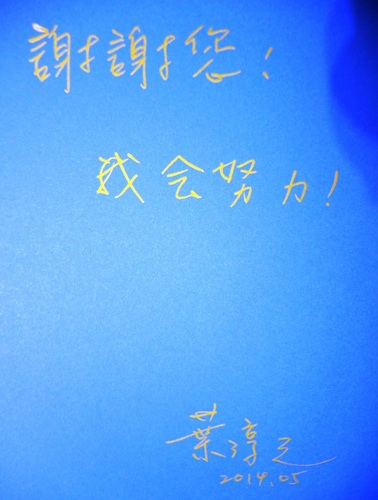 謝謝您!
我会努力!
葉淳之
2014.05